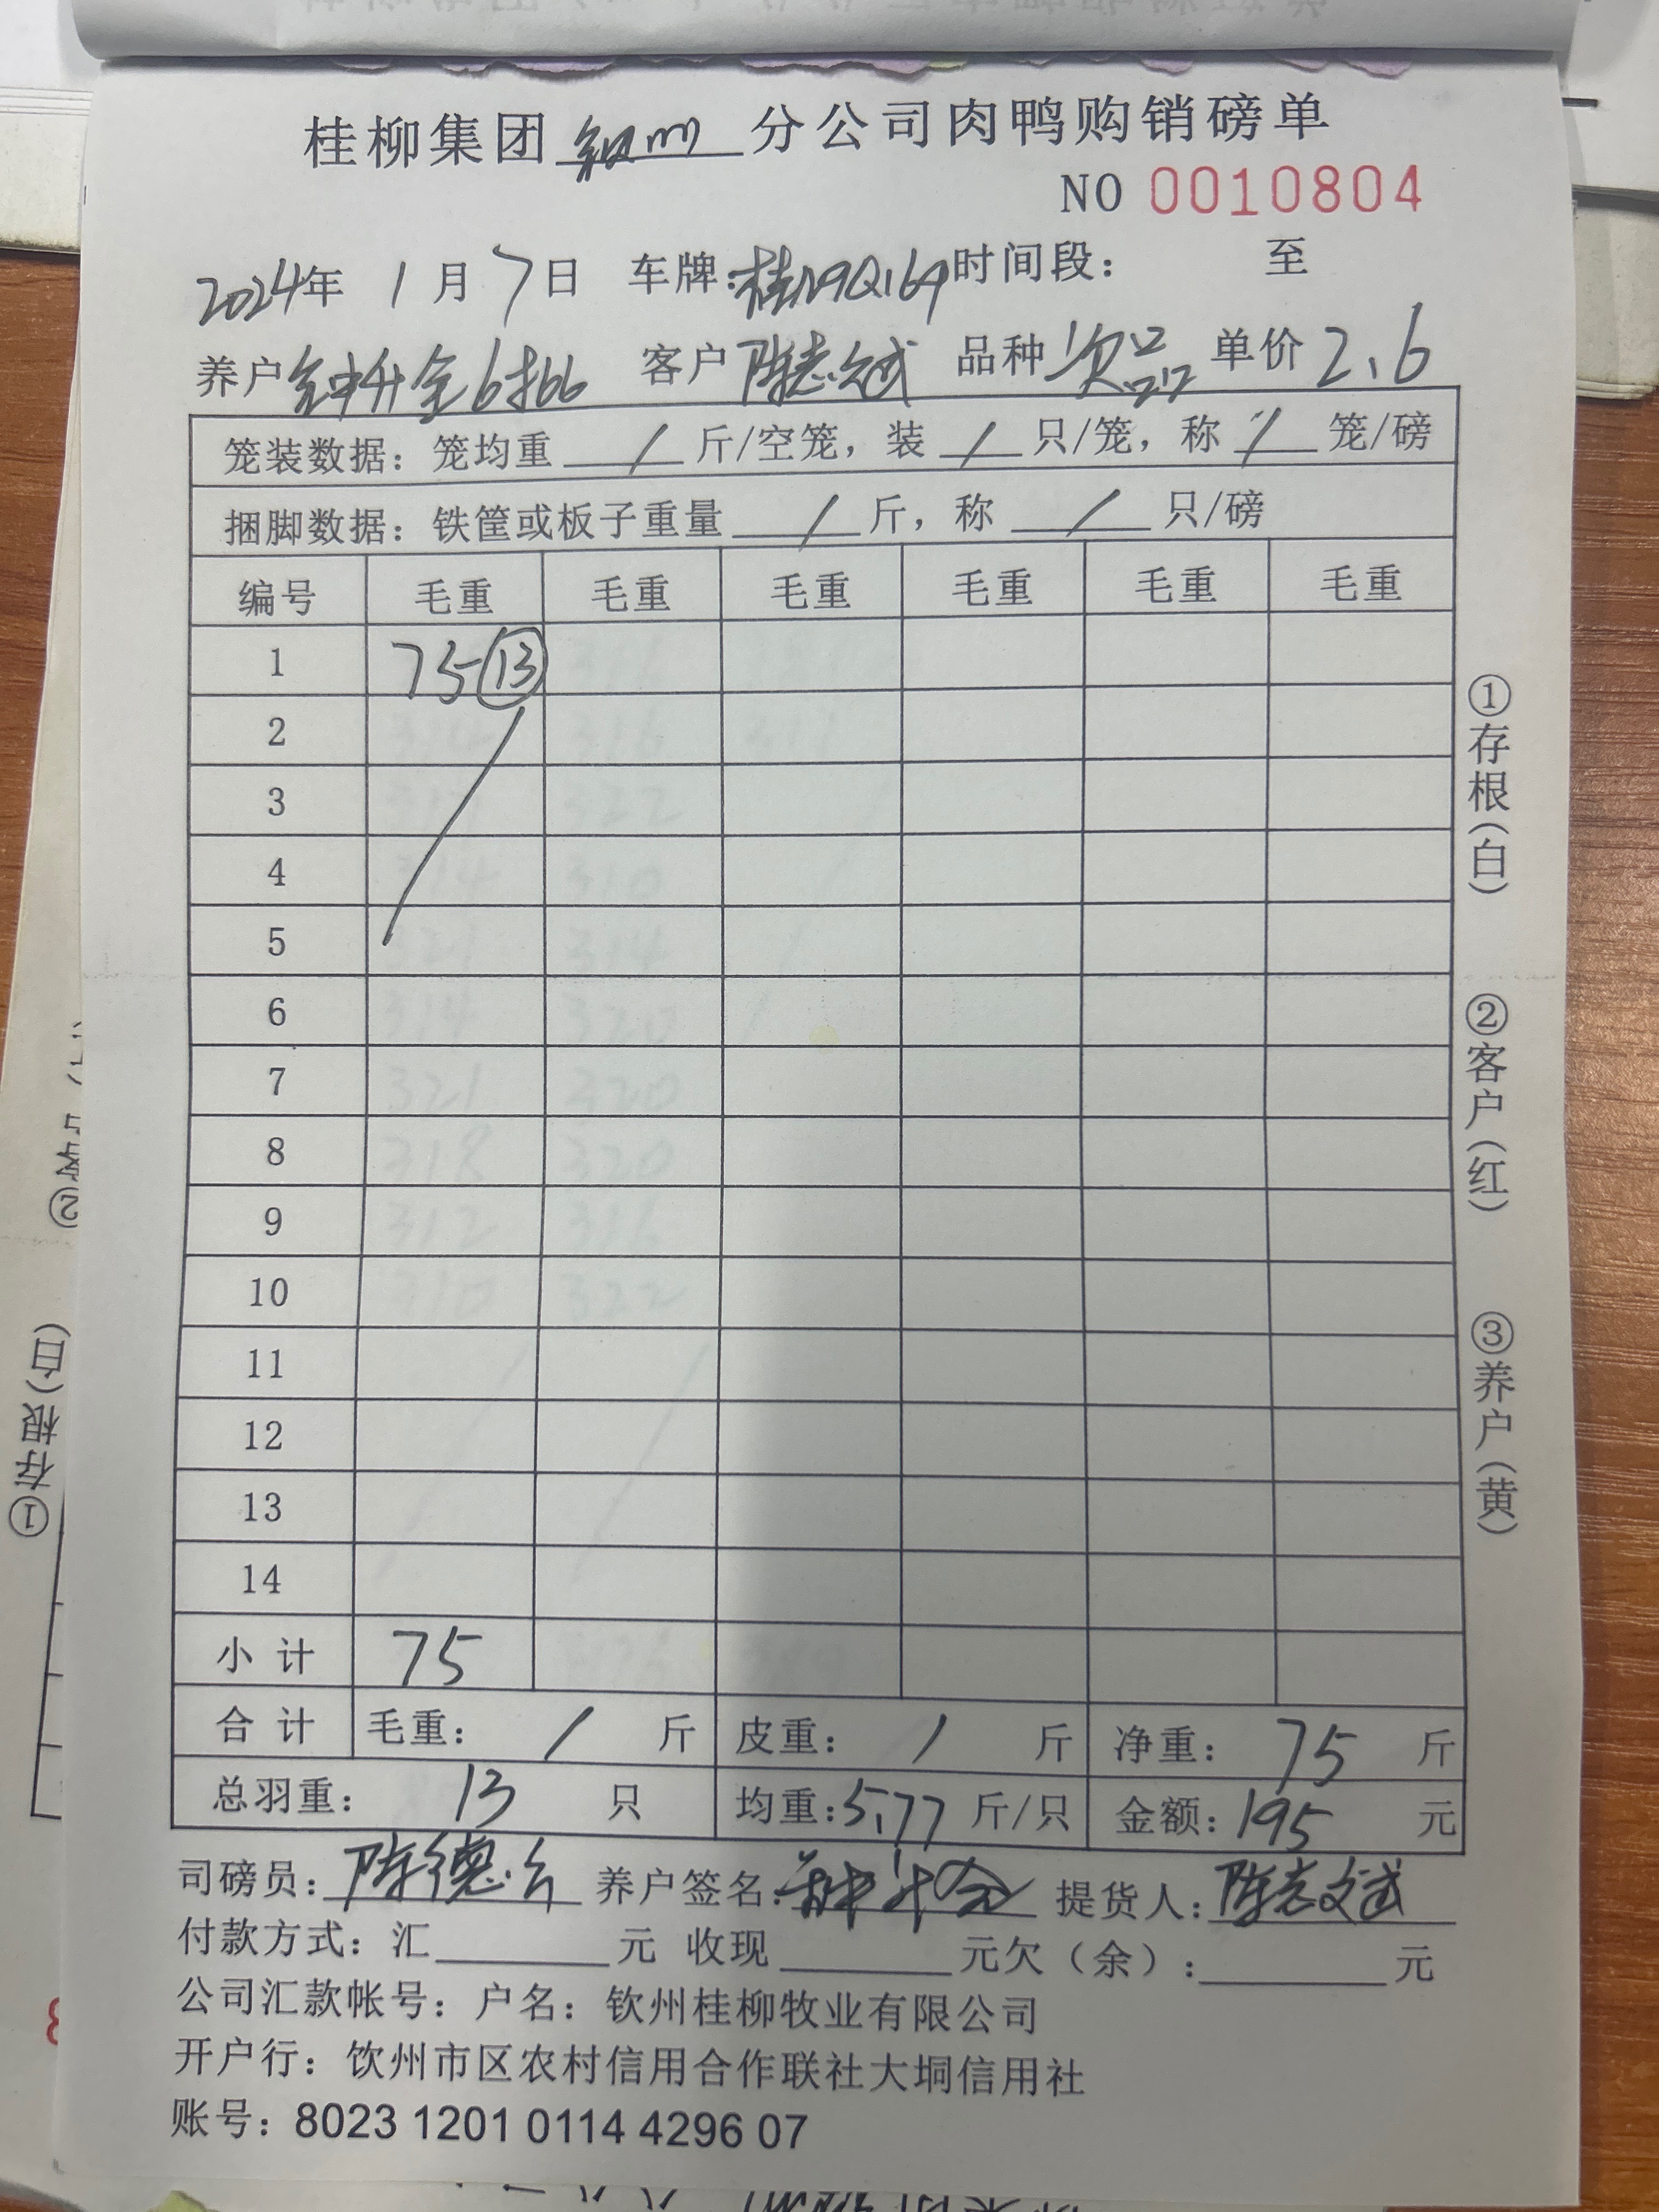 桂柳集团钦州分公司肉鸭购销磅单
NO 0010804
2024年 1月 7日 车牌:桂N9Q169 时间段: 至
养户 钟升全6批 客户 陈志斌 品种 次品 单价 2.6
笼装数据:笼均重 / 斤/空笼,装 / 只/笼,称 / 笼/磅
捆脚数据:铁筐或板子重量 / 斤,称 / 只/磅
编号 毛重 毛重 毛重 毛重 毛重 毛重
1 75 ⑬
2
3
4
5
6
7
8
9
10
11
12
13
14
小计 75
合计 毛重: / 斤 皮重: / 斤 净重: 75 斤
总羽重: 13 只 均重:5.77 斤/只 金额:195 元
司磅员:陈德 养户签名:钟升全 提货人:陈志斌
付款方式:汇______元 收现______元欠(余):______元
公司汇款帐号:户名:钦州桂柳牧业有限公司
开户行:钦州市区农村信用合作联社大垌信用社
账号:8023 1201 0114 4296 07
①存根(白)
②客户(红)
③养户(黄)
①存根(白)